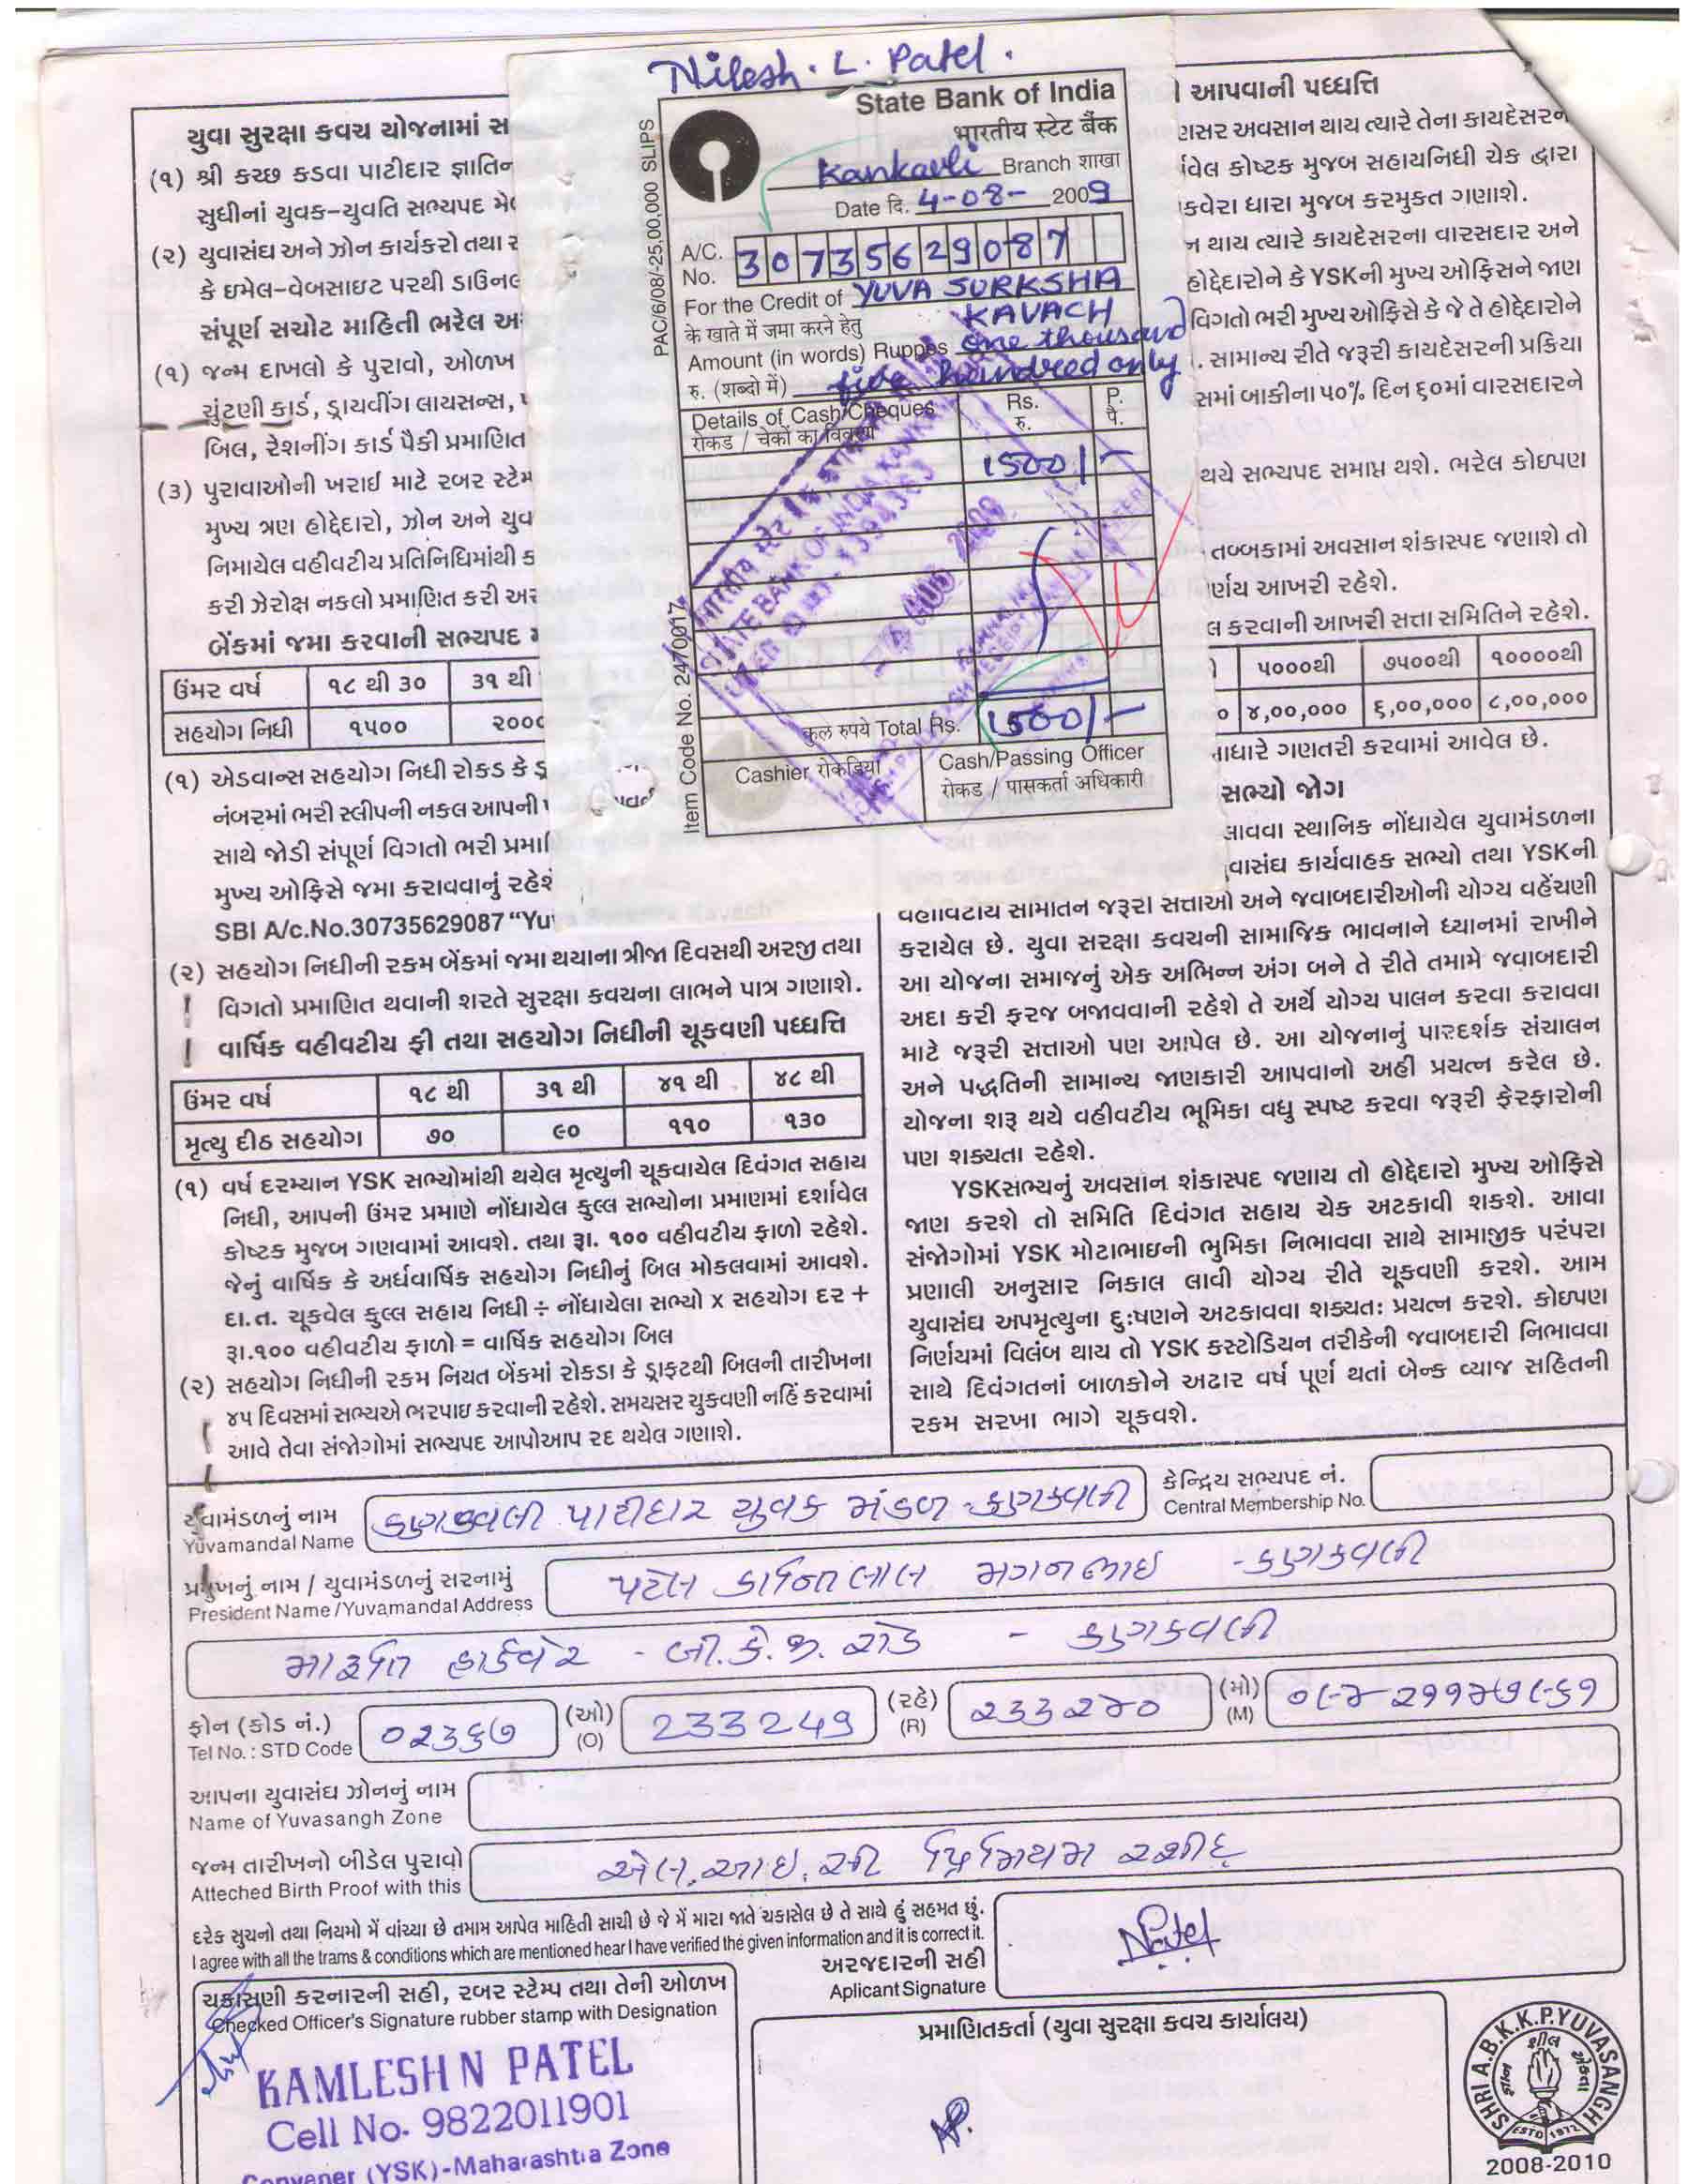 Nilesh. L. Patel.
State Bank of India
भारतीय स्टेट बैंक
Kankavli Branch शाखा
Date दि. 4-08- 2009
A/C. No. 30735629087
For the Credit of YUVA SURKSHA
के खाते में जमा करने हेतु KAVACH
Amount (in words) Ruppes one thousand
रु. (शब्दो में) five hundred only
Details of Cash/Cheques Rs. P.
रोकड / चेकों का विवरण रु. पै.
1500/-
कुल रुपये Total Rs. 1500/-
Cashier रोकडिया
Cash/Passing Officer
रोकड / पासकर्ता अधिकारी
PAC/6/08/-25,00,000 SLIPS
Item Code No. 2470017
યુવા સુરક્ષા કવચ યોજનામાં
(૧) શ્રી કચ્છ કડવા પાટીદાર
સુધીનાં યુવક-યુવતિ સભ્યપદ
(૨) યુવાસંઘ અને ઝોન કાર્યકરો તથા
કે ઇમેલ-વેબસાઇટ પરથી
સંપૂર્ણ સચોટ માહિતી ભરેલ
(૧) જન્મ દાખલો કે પુરાવો,
ચુંટણી કાર્ડ, ડ્રાયવીંગ લાયસન્સ,
બિલ, રેશનીંગ કાર્ડ પૈકી પ્રમાણિત
(૩) પુરાવાઓની ખરાઇ માટે રબર
મુખ્ય ત્રણ હોદ્દેદારો, ઝોન અને
નિમાયેલ વહીવટીય પ્રતિનિધિમાંથી
કરી ઝેરોક્ષ નકલો પ્રમાણિત કરી
બેંકમાં જમા કરવાની સભ્યપદ
ઉંમર વર્ષ ૧૮ થી ૩૦ ૩૧ થી
સહયોગ નિધી ૧૫૦૦ ૨૦૦૦
(૧) એડવાન્સ સહયોગ નિધી રોકડ કે
નંબરમાં ભરી સ્લીપની નકલ આપની
સાથે જોડી સંપૂર્ણ વિગતો ભરી
મુખ્ય ઓફિસે જમા કરાવવાનું રહેશે
SBI A/c.No.30735629087
(૨) સહયોગ નિધીની રકમ બેંકમાં જમા થયાના ત્રીજા દિવસથી અરજી તથા
વિગતો પ્રમાણિત થવાની શરતે સુરક્ષા કવચના લાભને પાત્ર ગણાશે.
વાર્ષિક વહીવટીય ફી તથા સહયોગ નિધીની ચૂકવણી પધ્ધતિ
ઉંમર વર્ષ ૧૮ થી ૩૧ થી ૪૧ થી ૪૮ થી
મૃત્યુ દીઠ સહયોગ ૭૦ ૯૦ ૧૧૦ ૧૩૦
(૧) વર્ષ દરમ્યાન YSK સભ્યોમાંથી થયેલ મૃત્યુની ચૂકવાયેલ દિવંગત સહાય
નિધી, આપની ઉંમર પ્રમાણે નોંધાયેલ કુલ્લ સભ્યોના પ્રમાણમાં દર્શાવેલ
કોષ્ટક મુજબ ગણવામાં આવશે. તથા રૂા. ૧૦૦ વહીવટીય ફાળો રહેશે.
જેનું વાર્ષિક કે અર્ધવાર્ષિક સહયોગ નિધીનું બિલ મોકલવામાં આવશે.
દા.ત. ચૂકવેલ કુલ્લ સહાય નિધી ÷ નોંધાયેલા સભ્યો x સહયોગ દર +
રૂા.૧૦૦ વહીવટીય ફાળો = વાર્ષિક સહયોગ બિલ
(૨) સહયોગ નિધીની રકમ નિયત બેંકમાં રોકડા કે ડ્રાફટથી બિલની તારીખના
૪૫ દિવસમાં સભ્યએ ભરપાઇ કરવાની રહેશે. સમયસર ચુકવણી નહિં કરવામાં
આવે તેવા સંજોગોમાં સભ્યપદ આપોઆપ રદ થયેલ ગણાશે.
આપવાની પધ્ધતિ
અવસાન થાય ત્યારે તેના કાયદેસરના
કોષ્ટક મુજબ સહાયનિધી ચેક દ્વારા
ધારા મુજબ કરમુક્ત ગણાશે.
થાય ત્યારે કાયદેસરના વારસદાર અને
હોદ્દેદારોને કે YSKની મુખ્ય ઓફિસને જાણ
વિગતો ભરી મુખ્ય ઓફિસે કે જે તે હોદ્દેદારોને
સામાન્ય રીતે જરૂરી કાયદેસરની પ્રક્રિયા
બાકીના ૫૦% દિન ૬૦માં વારસદારને
થયે સભ્યપદ સમાપ્ત થશે. ભરેલ કોઇપણ
તબ્બકામાં અવસાન શંકાસ્પદ જણાશે તો
આખરી રહેશે.
કરવાની આખરી સત્તા સમિતિને રહેશે.
૫૦૦૦થી ૭૫૦૦થી ૧૦૦૦૦થી
૪,૦૦,૦૦૦ ૬,૦૦,૦૦૦ ૮,૦૦,૦૦૦
ગણતરી કરવામાં આવેલ છે.
સભ્યો જોગ
સ્થાનિક નોંધાયેલ યુવામંડળના
કાર્યવાહક સભ્યો તથા YSKની
જરૂરી સત્તાઓ અને જવાબદારીઓની યોગ્ય વહેંચણી
કરાયેલ છે. યુવા સરક્ષા કવચની સામાજિક ભાવનાને ધ્યાનમાં રાખીને
આ યોજના સમાજનું એક અભિન્ન અંગ બને તે રીતે તમામે જવાબદારી
અદા કરી ફરજ બજાવવાની રહેશે તે અર્થે યોગ્ય પાલન કરવા કરાવવા
માટે જરૂરી સત્તાઓ પણ આપેલ છે. આ યોજનાનું પારદર્શક સંચાલન
અને પદ્ધતિની સામાન્ય જાણકારી આપવાનો અહી પ્રયત્ન કરેલ છે.
યોજના શરૂ થયે વહીવટીય ભૂમિકા વધુ સ્પષ્ટ કરવા જરૂરી ફેરફારોની
પણ શક્યતા રહેશે.
YSKસભ્યનું અવસાન શંકાસ્પદ જણાય તો હોદ્દેદારો મુખ્ય ઓફિસે
જાણ કરશે તો સમિતિ દિવંગત સહાય ચેક અટકાવી શકશે. આવા
સંજોગોમાં YSK મોટાભાઇની ભુમિકા નિભાવવા સાથે સામાજીક પરંપરા
પ્રણાલી અનુસાર નિકાલ લાવી યોગ્ય રીતે ચૂકવણી કરશે. આમ
યુવાસંઘ અપમૃત્યુના દુઃષણને અટકાવવા શક્યતઃ પ્રયત્ન કરશે. કોઇપણ
નિર્ણયમાં વિલંબ થાય તો YSK કસ્ટોડિયન તરીકેની જવાબદારી નિભાવવા
સાથે દિવંગતનાં બાળકોને અઢાર વર્ષ પૂર્ણ થતાં બેન્ક વ્યાજ સહિતની
રકમ સરખા ભાગે ચૂકવશે.
યુવામંડળનું નામ કણકવલી પાટીદાર યુવક મંડળ - કણકવલી કેન્દ્રિય સભ્યપદ નં.
Yuvamandal Name Central Membership No.
પ્રમુખનું નામ / યુવામંડળનું સરનામું પટેલ કાન્તિલાલ મગનભાઇ - કણકવલી
President Name/Yuvamandal Address
મારૂતિ હાર્ડવેર - બી.કે.જી. રોડ - કણકવલી
ફોન (કોડ નં.) ૦૨૩૬૭ (ઓ) 233249 (રહે) ૨૩૩૨૪૦ (મો)
Tel No.: STD Code (O) (R) (M)
આપના યુવાસંઘ ઝોનનું નામ
Name of Yuvasangh Zone
જન્મ તારીખનો બીડેલ પુરાવો એલ.આઇ.સી પ્રિમિયમ રસીદ
Atteched Birth Proof with this
દરેક સુચનો તથા નિયમો મેં વાંચ્યા છે તમામ આપેલ માહિતી સાચી છે જે મેં મારા જાતે ચકાસેલ છે તે સાથે હું સહમત છું.
I agree with all the trams & conditions which are mentioned hear I have verified the given information and it is correct it.
અરજદારની સહી
Aplicant Signature
NPatel
ચકાસણી કરનારની સહી, રબર સ્ટેમ્પ તથા તેની ઓળખ
Checked Officer's Signature rubber stamp with Designation
KAMLESH N PATEL
Cell No. 9822011901
Convener (YSK)-Maharashtra Zone
પ્રમાણિતકર્તા (યુવા સુરક્ષા કવચ કાર્યાલય)
SHRI A.B.K.K.P.YUVASANGH
ESTD 1972
2008-2010